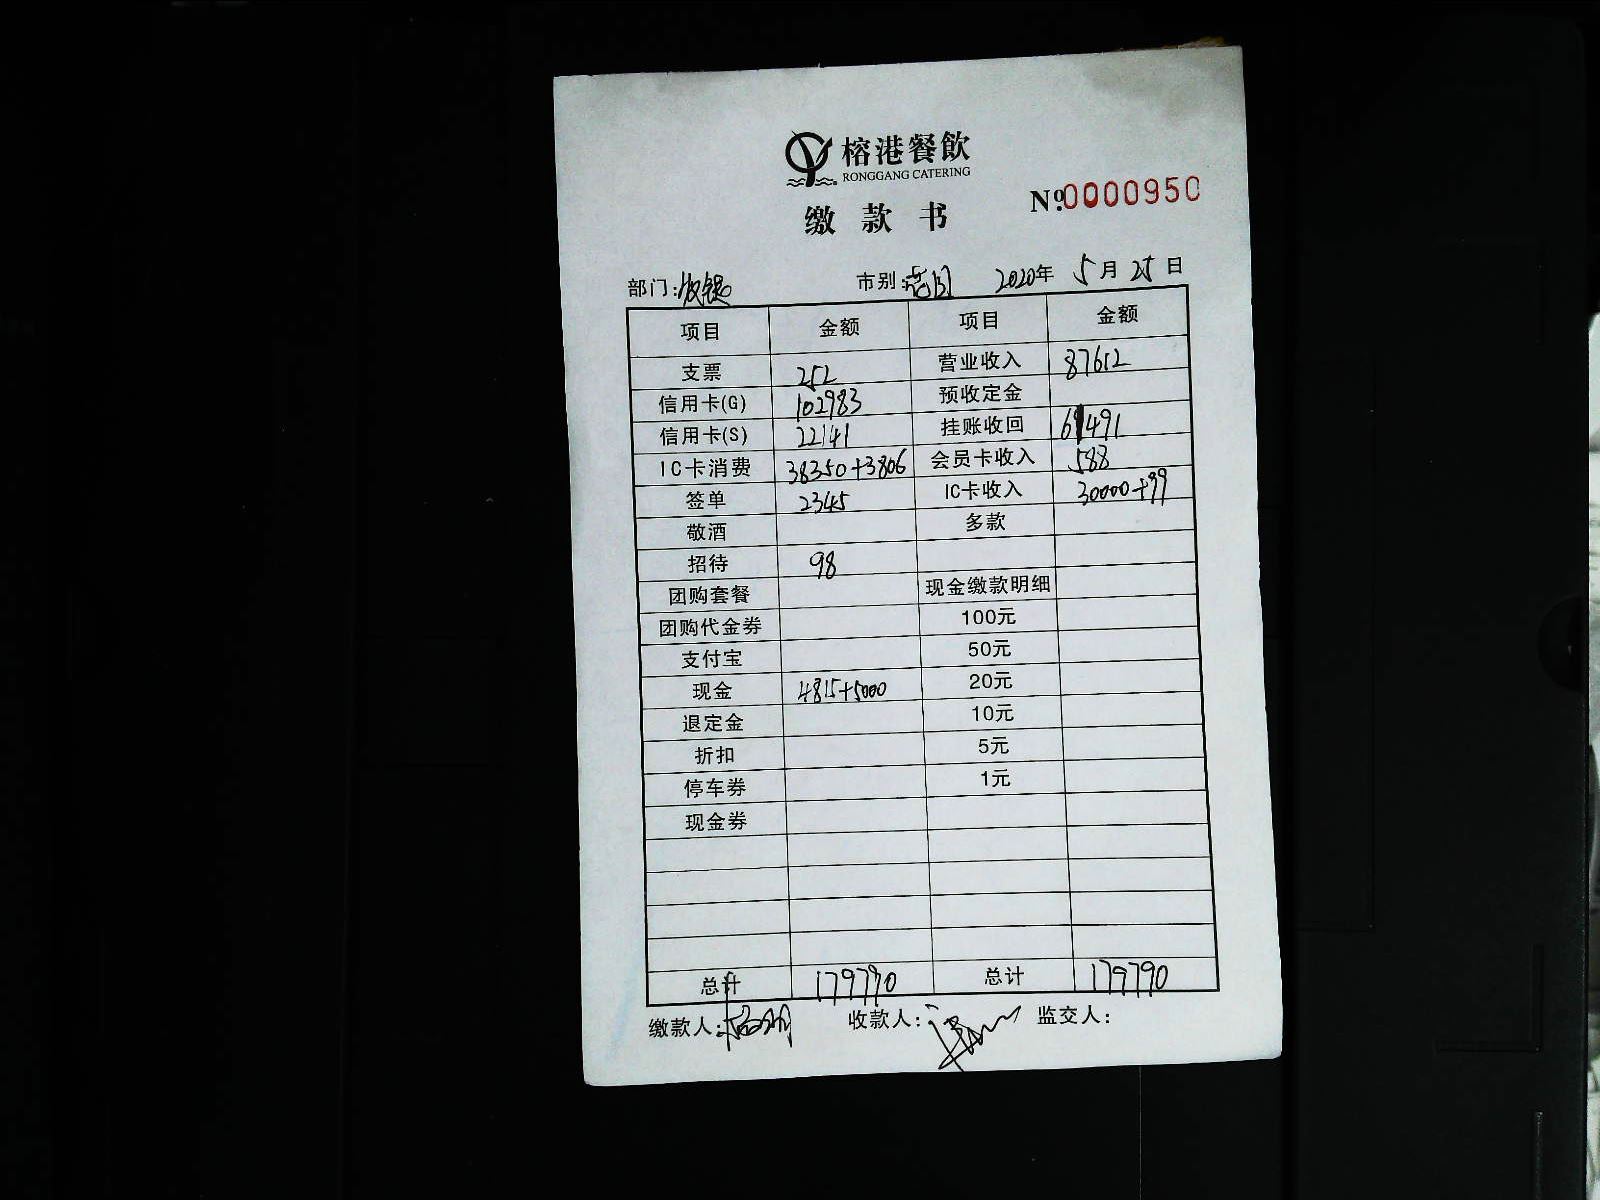 榕港餐飲
RONGGANG CATERING
缴款书
Nº 0000950
部门:收银 市别: 2020年 5月 25日
项目 金额 项目 金额
支票 252 营业收入 87612
信用卡(G) 102983 预收定金
信用卡(S) 22141 挂账收回 61491
IC卡消费 38350+3806 会员卡收入 588
签单 2345 IC卡收入 30000+99
敬酒 多款
招待 98
团购套餐 现金缴款明细
团购代金券 100元
支付宝 50元
现金 4815+5000 20元
退定金 10元
折扣 5元
停车券 1元
现金券
总计 179790 总计 179790
缴款人: 收款人: 监交人: